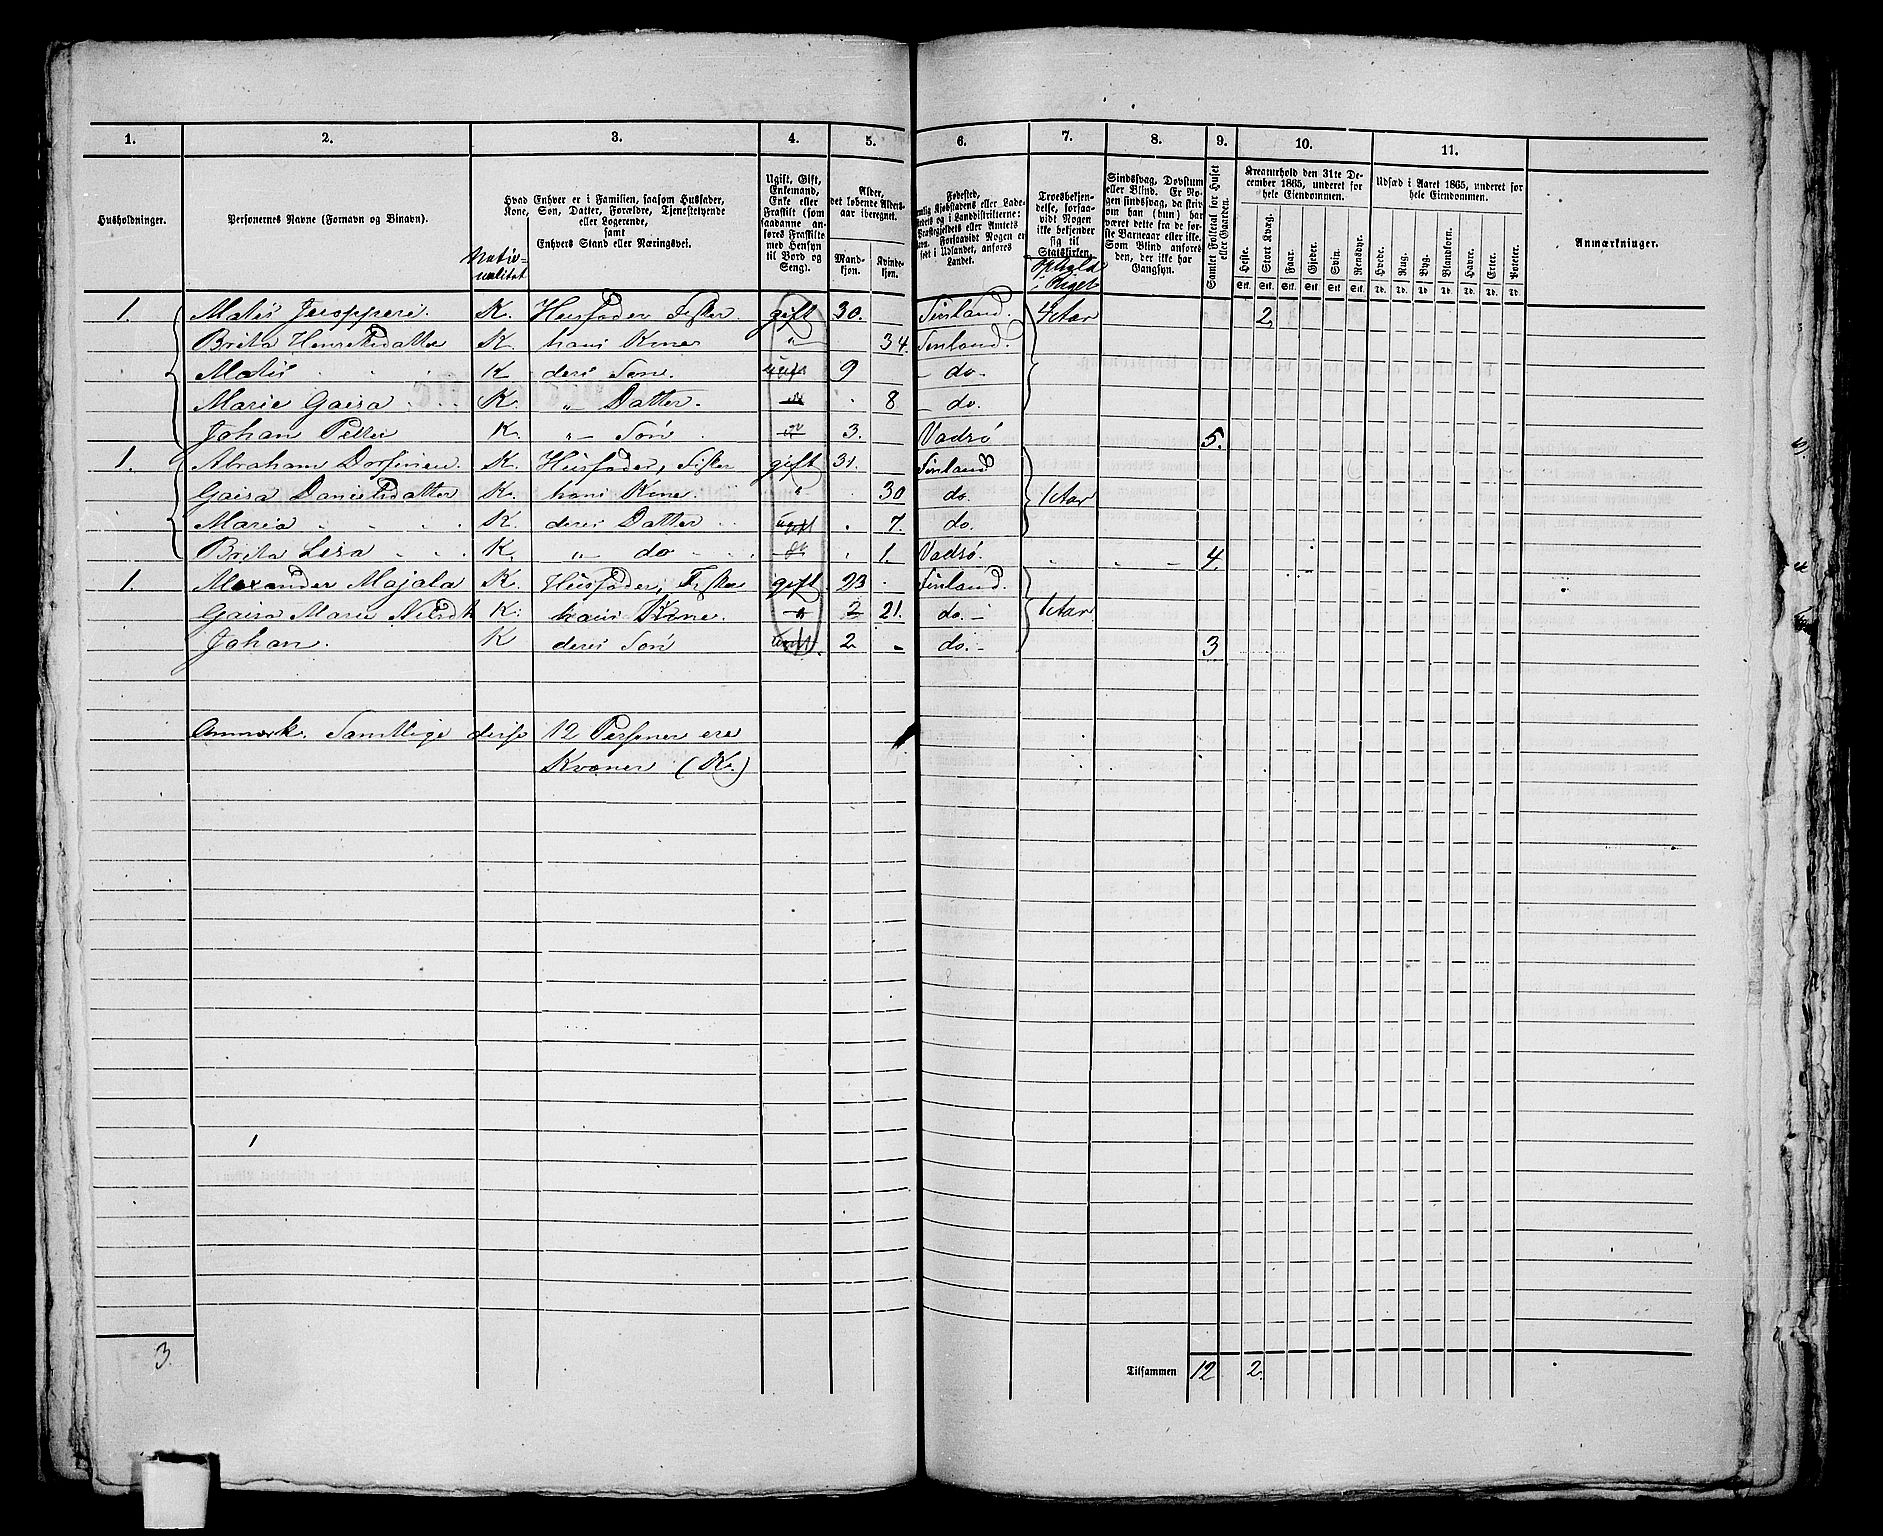 1. 2. 3. 4. 5. 6. 7. 8. 9. 10. 11.
Husholdninger.
Personernes Navne (Fornavn og Binavn).
Hvad Enhver er i Familien, saasom Husfader, Kone, Søn, Datter, Forældre, Tjenestetyende eller Logerende, samt Enhvers Stand eller Næringsvei.
Natio-
nalitet
Ugift, Gift, Enkemand, Enke eller Fraskilt (som saadanne anføres Fraskilte med Hensyn til Bord og Seng).
Alder, det løbende Alders-aar iberegnet.
Mand-kjøn. Kvinde-kjøn.
Fødested,
Kjøbstadens eller Lade-
og i Landdistrikterne:
eller Amtets
Forsaavidt Nogen er
født i Udlandet, anføres
Landet.
Troesbekjen-delse, forsaa-vidt Nogen ikke bekjender sig til Statskirken.
Ophold
i Riget
Sindssvag, Døvstum eller Blind. Er No-gen sindssvag, da skriv om han (hun) har været dette fra de før-ste Barneaar eller ikke. Som Blind anføres den, der ikke har Gangsyn.
Samlet Folketal for Huset eller Gaarden.
Kreaturhold den 31te De-cember 1865, underet for hele Eiendommen.
Heste. Stort Kvæg. Faar. Gjeder. Svin. Rensdyr.
Stk. Stk. Stk. Stk. Stk. Stk.
Udsæd i Aaret 1865, underet for hele Eiendommen.
Hvede. Rug. Byg. Blandkorn. Havre. Erter. Poteter.
Td. Td. Td. Td. Td. Td. Td.
Anmærkninger.
1. Matis K. Husfader, Fisker. gift 30. Finland. 4 Aar 2
Brita Henriksdatter K hans Kone " 34. Finland.
Matis K deres Søn. ugift 9 - do -
Marie Gaisa K. " Datter. " 8 - do.
Johan Petter K. " Søn " 3. Vadsø 5.
1. Abraham K. Husfader, Fisker gift 31. Finland
Gaisa Danielsdatter K. hans Kone. " 30 do. 1 Aar
Maria K. deres Datter ugift 7. do.
Brita Lisa K. " do " 1. Vadsø. 4
1. Alexander Majala K. Husfader, Fisker gift 23 Finland.
Gaisa Marie K. hans Kone. " 2 21. do. - 1 Aar
Johan. K deres Søn ugift. 2 - do. - 3
Anmærk. Samtlige disse 12 Personer ere
Kvæner (K.)
3.
Tilsammen 12 2.